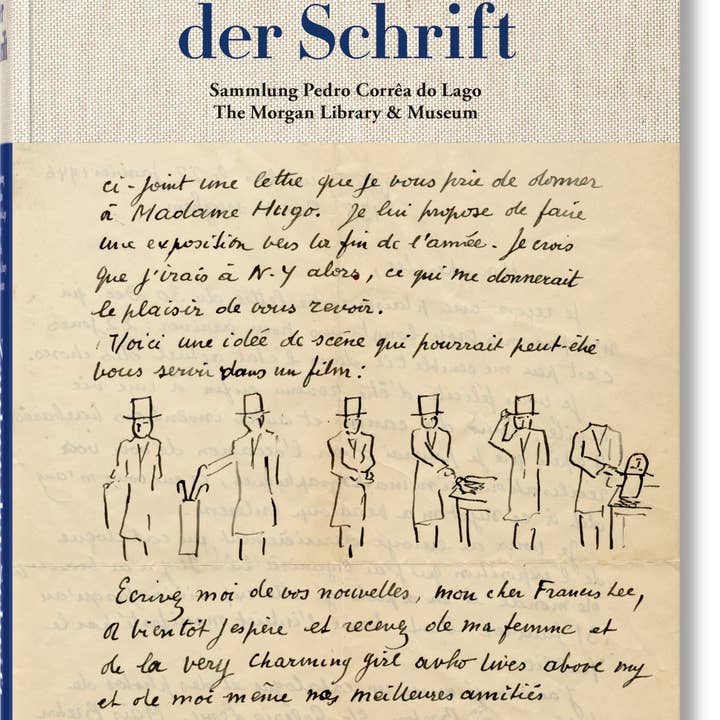 der Schrift
Sammlung Pedro Corrêa do Lago
The Morgan Library & Museum
ci-joint une lettre que je vous prie de donner
à Madame Hugo. Je lui propose de faire
une exposition vers la fin de l'année. Je crois
que j'irais à N-Y alors, ce qui me donnerait
le plaisir de vous revoir.
Voici une idée de scène qui pourrait peut-être
vous servir dans un film:
Ecrivez moi de vos nouvelles, mon cher Francis Lee,
à bientôt j'espère et recevez de ma femme et
de la very charming girl who lives above my
et de moi même nos meilleures amitiés